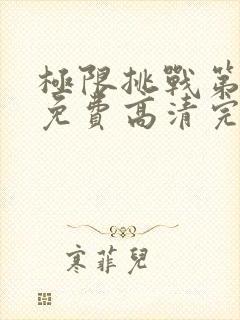 極限挑戰第
免費高清完
寒菲兒